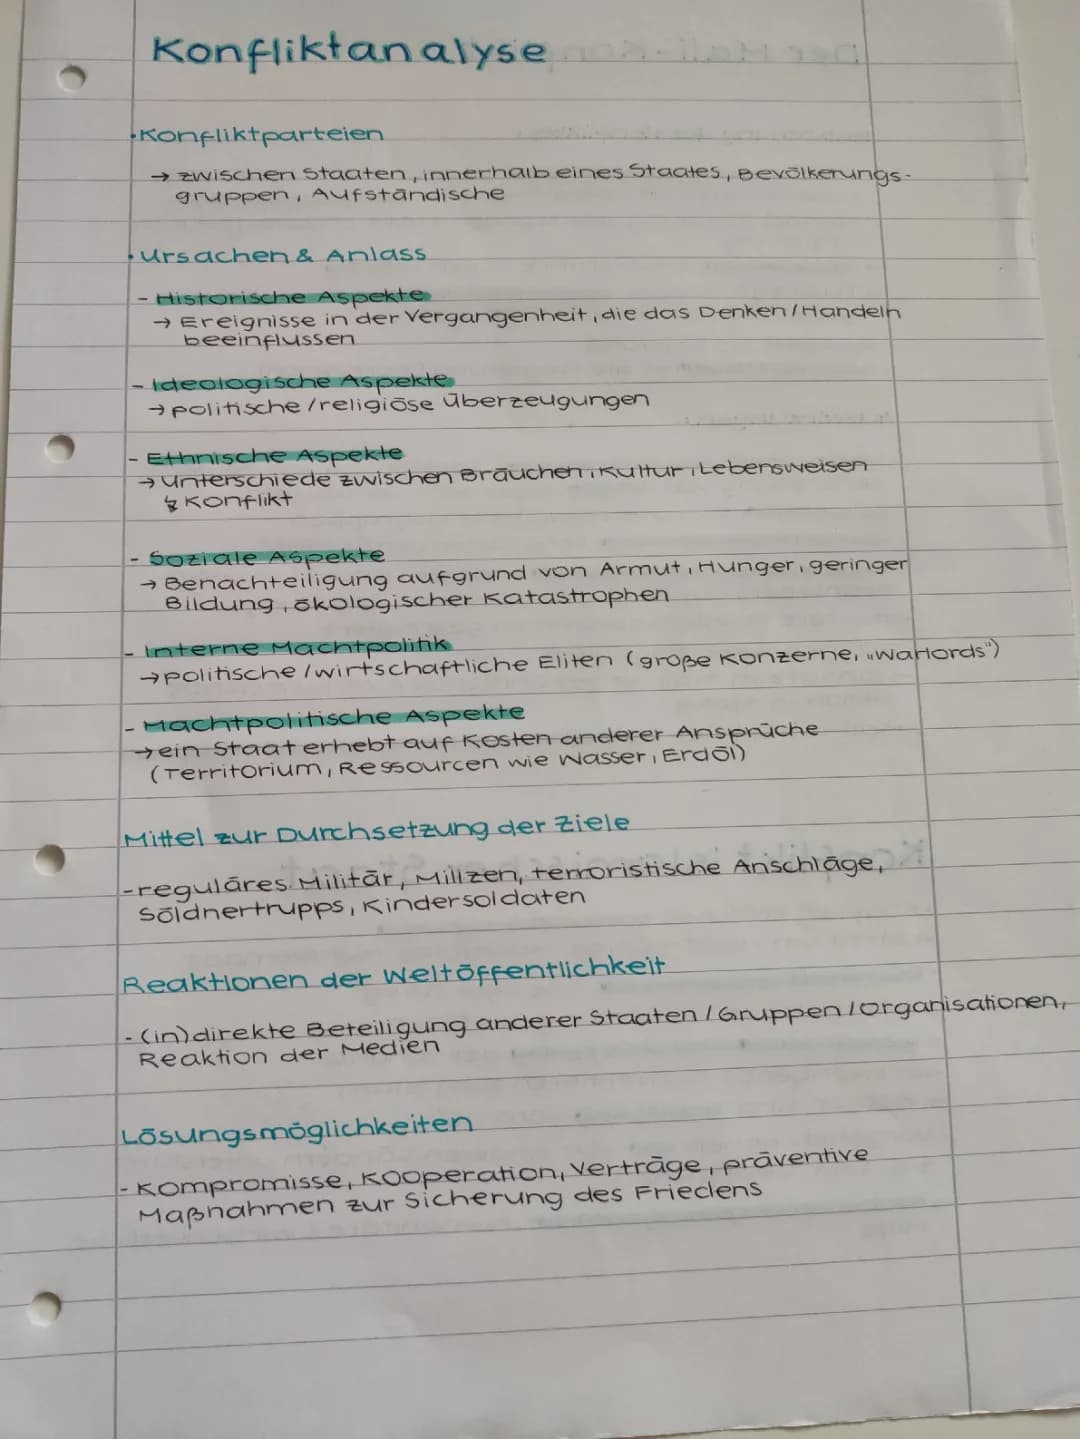 Konfliktanalyse
• Konfliktparteien
→ zwischen Staaten, innerhalb eines Staates, Bevölkerungs-
gruppen, Aufständische
• Ursachen & Anlass
- Historische Aspekte
→ Ereignisse in der Vergangenheit, die das Denken/Handeln
beeinflussen
- Ideologische Aspekte
→ politische/religiöse Überzeugungen
- Ethnische Aspekte
→ Unterschiede zwischen Bräuchen, Kultur, Lebensweisen
↯ Konflikt
- Soziale Aspekte
→ Benachteiligung aufgrund von Armut, Hunger, geringer
Bildung, ökologischer Katastrophen
- Interne Machtpolitik
→ politische/wirtschaftliche Eliten (große Konzerne, „Warlords")
- Machtpolitische Aspekte
→ ein Staat erhebt auf Kosten anderer Ansprüche
(Territorium, Ressourcen wie Wasser, Erdöl)
Mittel zur Durchsetzung der Ziele
- reguläres Militär, Milizen, terroristische Anschläge,
Söldnertrupps, Kindersoldaten
Reaktionen der Weltöffentlichkeit
- (in)direkte Beteiligung anderer Staaten/Gruppen/Organisationen,
Reaktion der Medien
Lösungsmöglichkeiten
- Kompromisse, Kooperation, Verträge, präventive
Maßnahmen zur Sicherung des Friedens